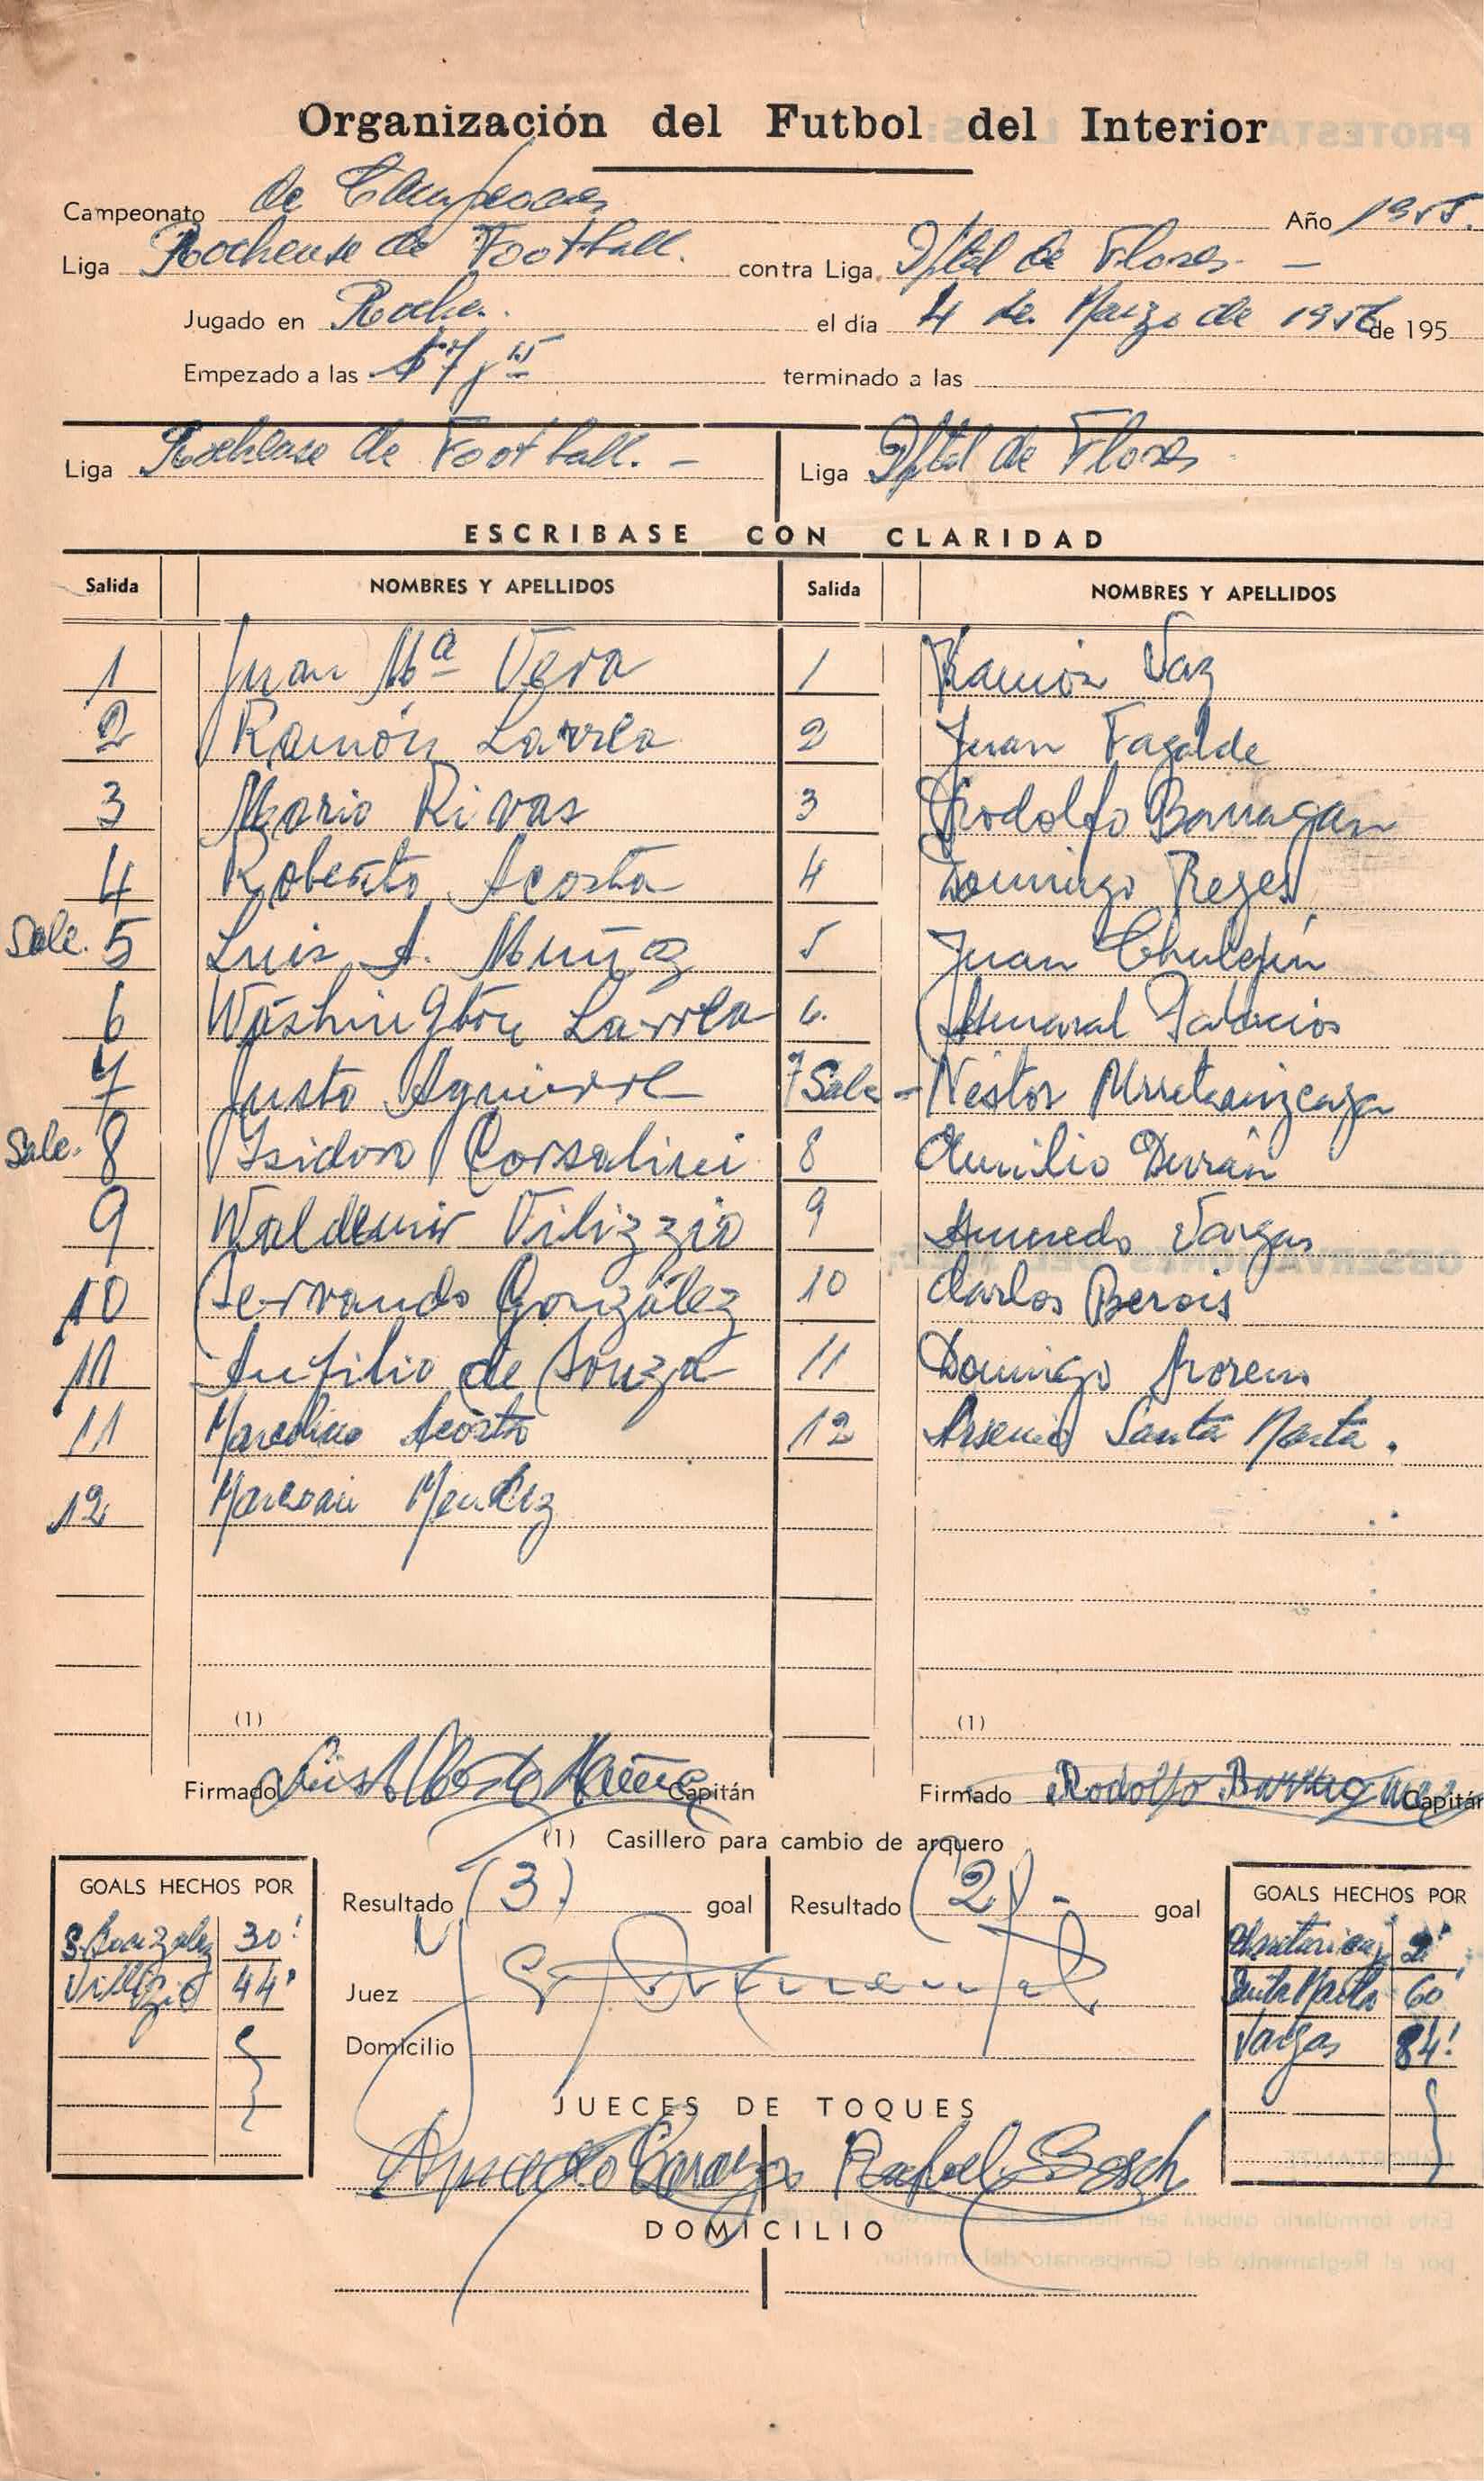 Organización del Futbol del Interior
Campeonato de Campeones Año 1955.
Liga Rochense de Football. contra Liga D/tal de Flores -
Jugado en Rocha. el día 4 de Marzo de 1956 de 195
Empezado a las 17 y 15 terminado a las
Liga Rochense de Football. - Liga D/tal de Flores
ESCRIBASE CON CLARIDAD
Salida NOMBRES Y APELLIDOS Salida NOMBRES Y APELLIDOS
1 Juan Mª Vera 1 Ramón Vaz
2 Ramón Larrea 2 Juan Fagalde
3 Mario Rivas 3 Rodolfo Barragan
4 Roberto Acosta 4 Domingo Reyes
Sale. 5 Luis A. Muñoz 5 Juan
6 Washington Larrea 6. Amaral Palacios
7 Justo Aguirre 7 Sale - Néstor
Sale. 8 Isidoro Corsalini 8 Aurilio Durán
9 Waldemir Vilizzio 9 Amaredo Vargas
10 Servando González 10 Carlos Berois
11 de Souza 11 Domingo Moreno
11 Marcelino Acosta 12 Arsenio Santa Marta.
12 Mendez
(1) (1)
Firmado Luis Alberto Muñoz Capitán Firmado Rodolfo Barragan Capitán
(1) Casillero para cambio de arquero
GOALS HECHOS POR Resultado (3) goal Resultado (2) - goal GOALS HECHOS POR
S. Gonzalez 30' 2'
Villizzio 44' Juez Santa Marta 60'
Domicilio Vargas 84'
JUECES DE TOQUES
Rafael Bosch
DOMICILIO